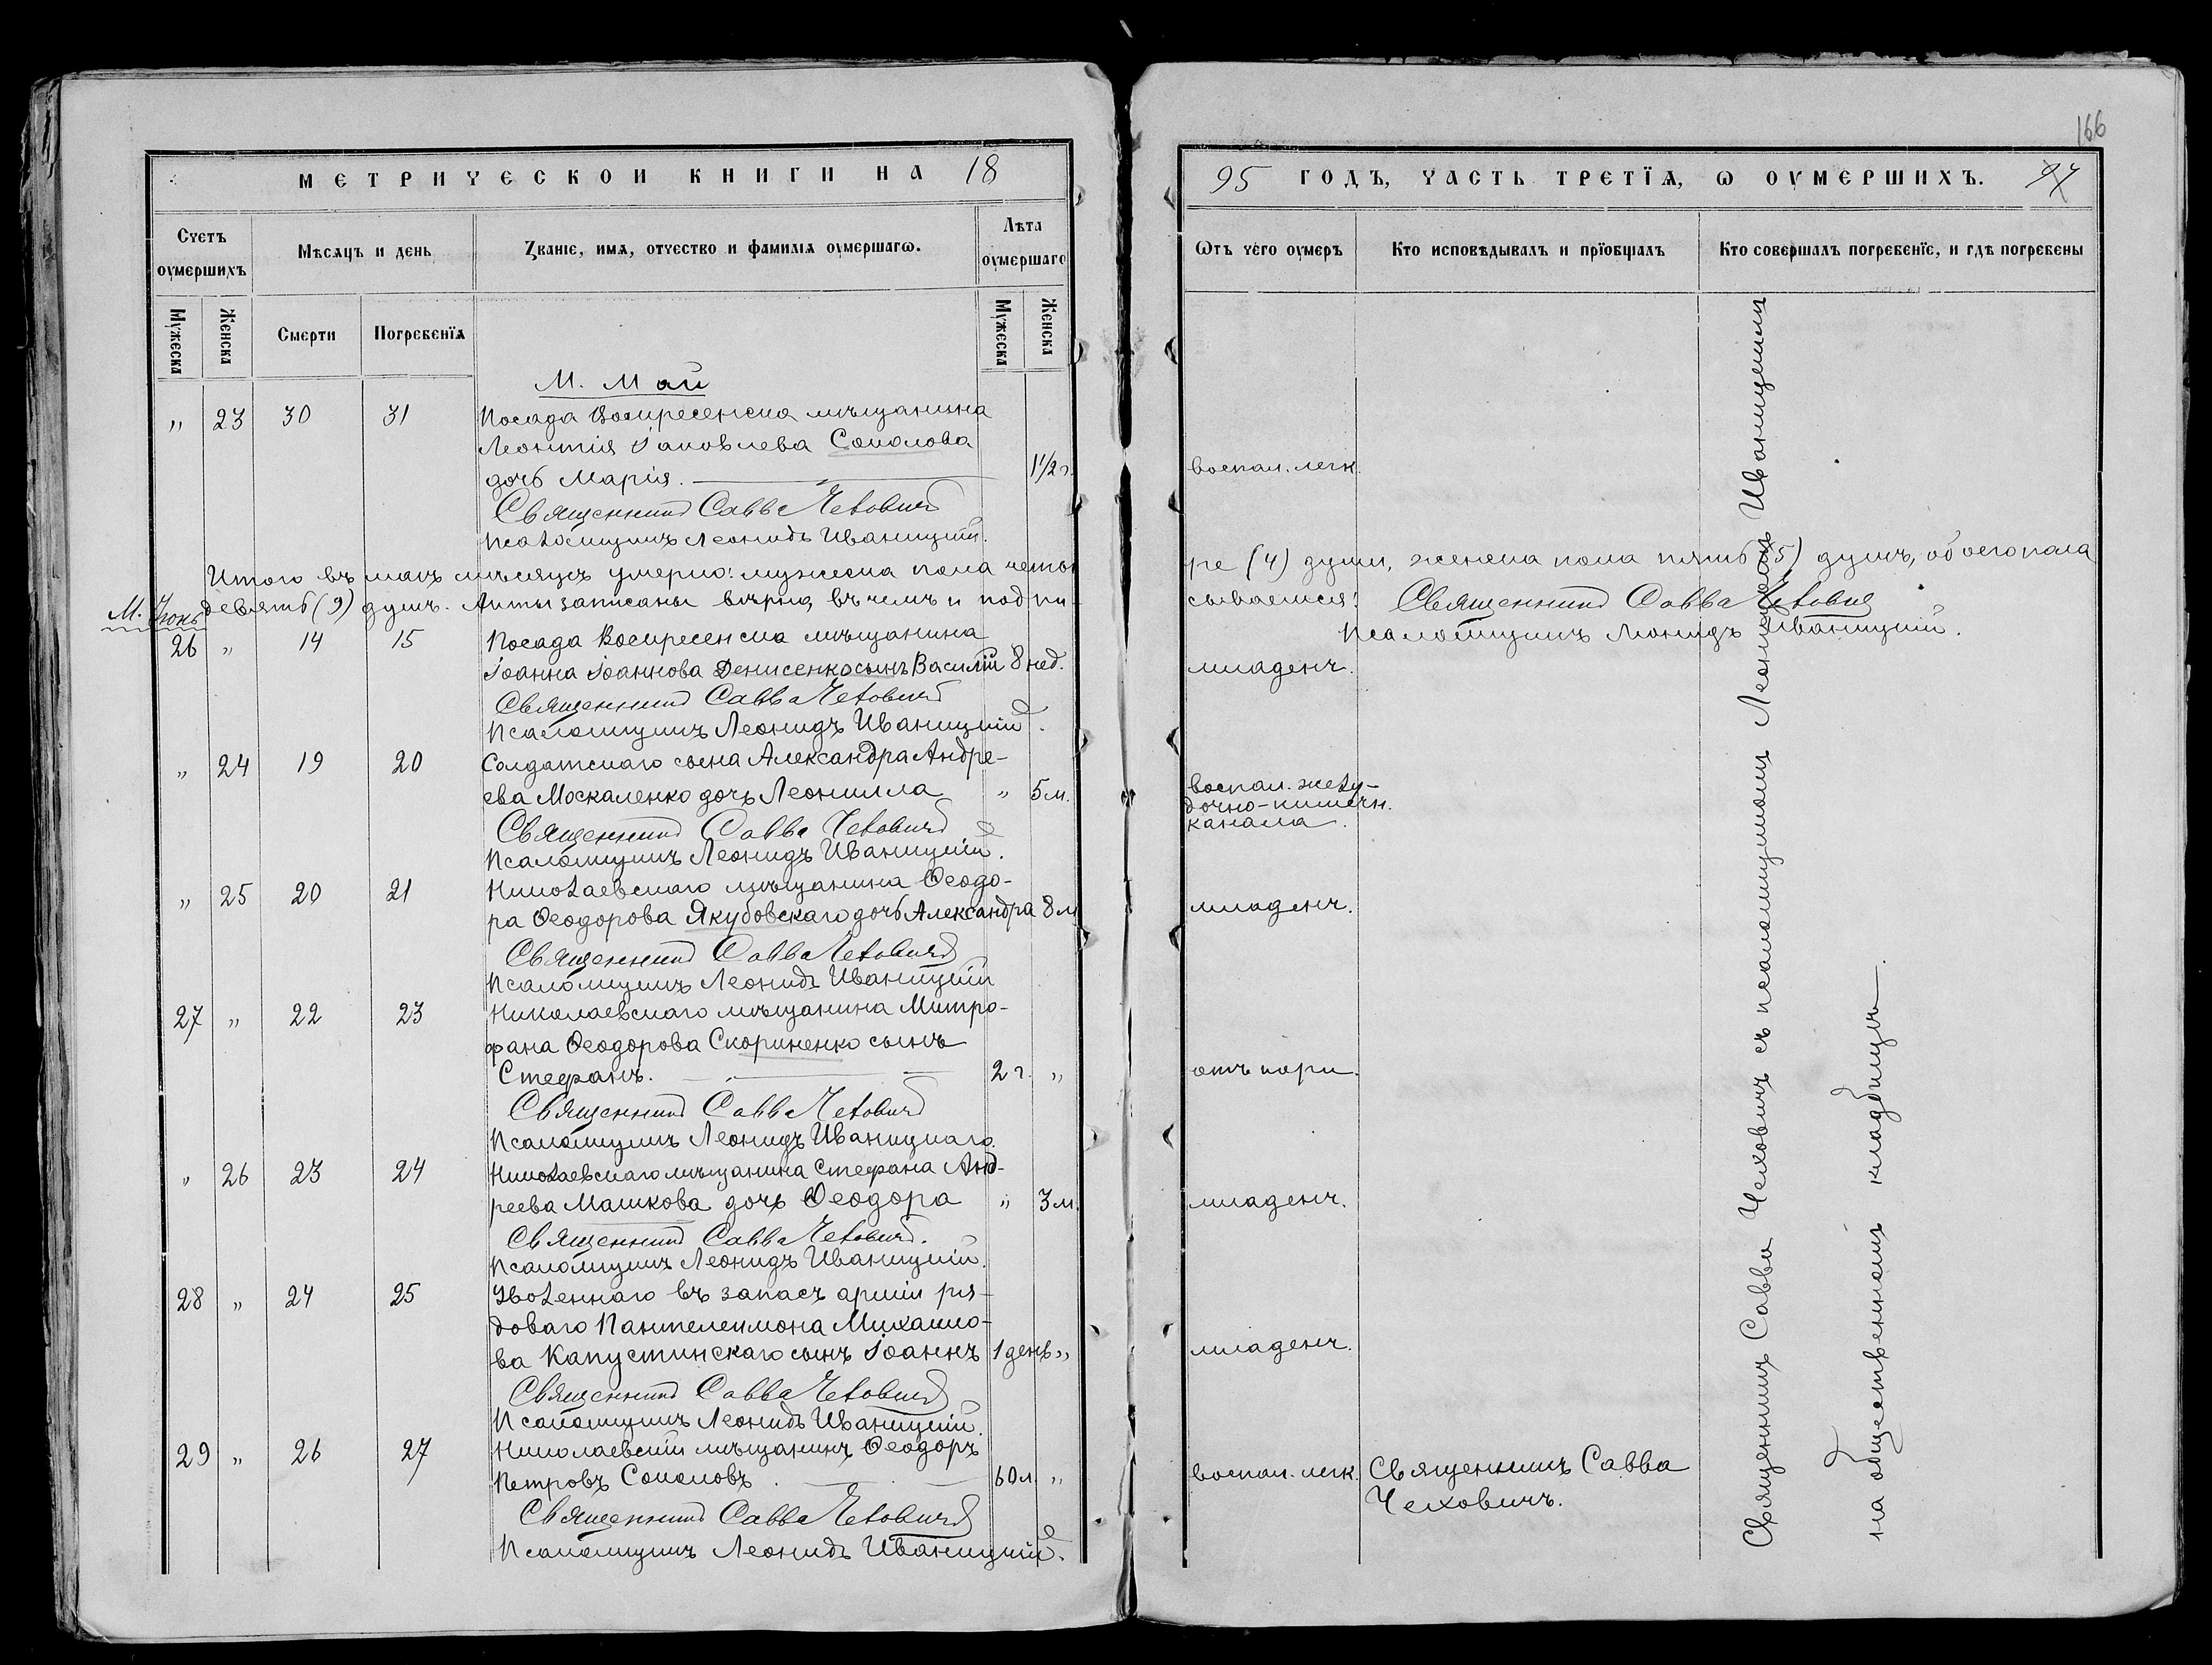 МЕТРИЧЕСКОЙ КНИГИ НА 18
Счетъ оумершихъ
Мѣсяцъ и день
Званіе, имя, отчество и фамилія оумершагѡ.
Лѣта оумершаго
Мужеска
Женска
Смерти
Погребенїя
Мужеска
Женска
М. Май
" 23 30 31 Посада Воскресенска мѣщанина
Леонтія Іаковлева Соколова
дочь Марія. 1 1/2 г.
Священникъ Савва Чеховичъ
Псаломщикъ Леонидъ Иваницкій.
Итого въ маѣ мѣсяцѣ умерло: мужеска пола четы-
девять (9) душъ. Акты записаны вѣрно, въ чемъ и подпи-
М. Іюнь
26 " 14 15 Посада Воскресенска мѣщанина
Іоанна Іоаннова Денисенко сынъ Василій 8 нед.
Священникъ Савва Чеховичъ
Псаломщикъ Леонидъ Иваницкій.
" 24 19 20 Солдатскаго сына Александра Андре-
ева Москаленко дочь Леонилла " 5 м.
Священникъ Савва Чеховичъ
Псаломщикъ Леонидъ Иваницкій.
" 25 20 21 Николаевскаго мѣщанина Ѳеодо-
ра Ѳеодорова Якубовскаго дочь Александра 8 м
Священникъ Савва Чеховичъ
Псаломщикъ Леонидъ Иваницкій
27 " 22 23 Николаевскаго мѣщанина Митро-
фана Ѳеодорова Скориненко сынъ
Стефанъ. 2 г. "
Священникъ Савва Чеховичъ
Псаломщикъ Леонидъ Иваницкаго.
" 26 23 24 Николаевскаго мѣщанина Стефана Анд-
реева Машкова дочь Ѳеодора " 3 м.
Священникъ Савва Чеховичъ.
Псаломщикъ Леонидъ Иваницкій.
28 " 24 25 Уволеннаго въ запасъ арміи ря-
доваго Пантелеимона Михаило-
ва Капустинскаго сынъ Іоаннъ 1 день "
Священникъ Савва Чеховичъ
Псаломщикъ Леонидъ Иваницкій.
29 " 26 27 Николаевскій мѣщанинъ Ѳеодоръ
Петровъ Соколовъ. 60 л. "
Священникъ Савва Чеховичъ
Псаломщикъ Леонидъ Иваницкій.
166
95 ГОДЪ, ЧАСТЬ ТРЕТЇЯ, Ѡ ОУМЕРШИХЪ.
Ѿтъ чегѡ оумеръ
Кто исповѣдывалъ и прїобщалъ
Кто совершалъ погребенїе, и гдѣ погребены
воспал. легк.
ре (4) души, женска пола пять (5) душъ, обоего пола
сываемся: Священникъ Савва Чеховичъ
Псаломщикъ Леонидъ Иваницкій.
младенч.
воспал. желу-
дочно-кишечн.
канала.
младенч.
отъ кори.
младенч.
младенч.
воспал. легк. Священникъ Савва
Чеховичъ.
Священникъ Савва Чеховичъ съ псаломщикомъ Леонидомъ Иваницкимъ
на общественномъ кладбищѣ.